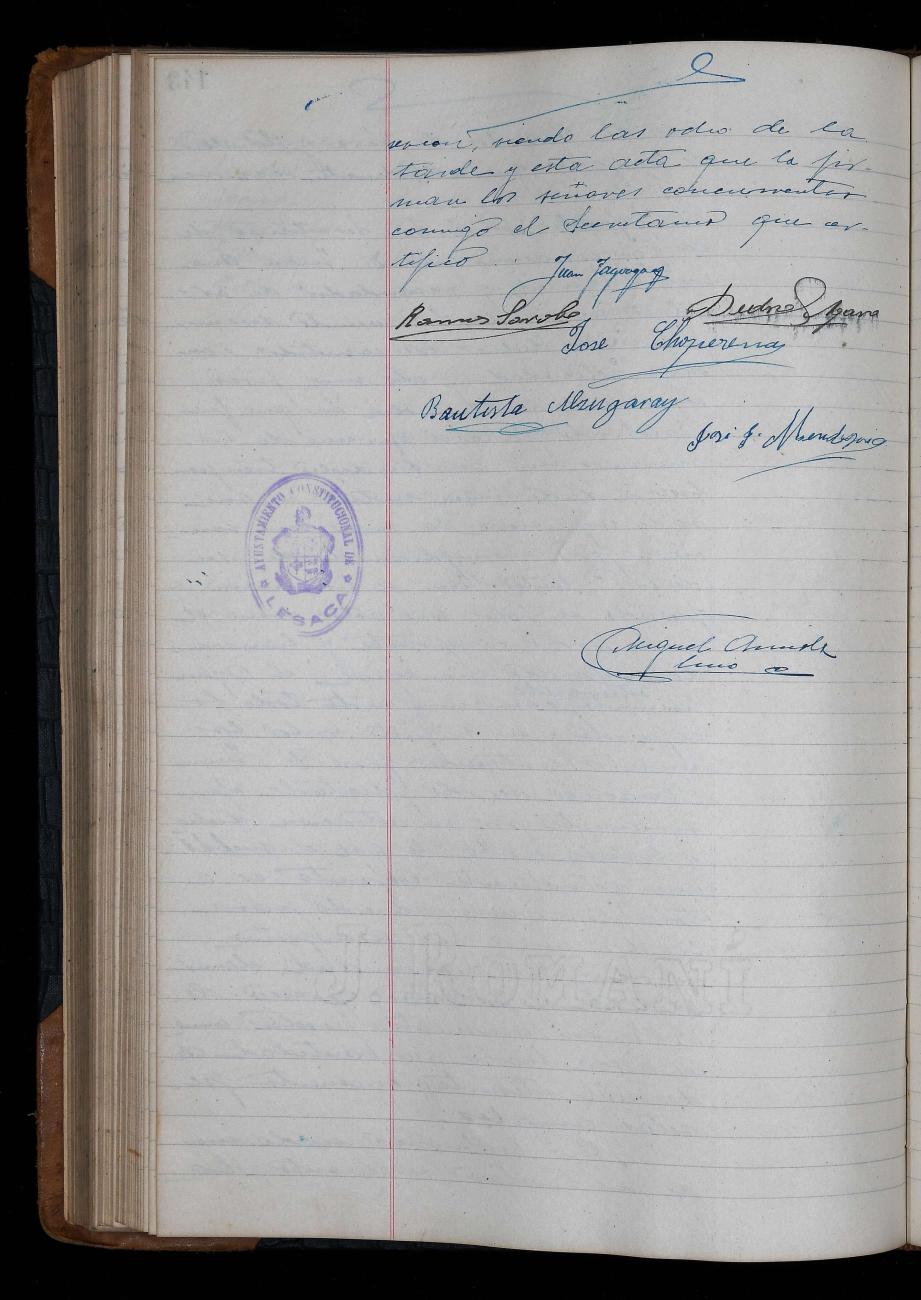 sesion, siendo las ocho de la
tarde y esta acta que la fir-
man los señores concurrentes
conmigo el Secretario que cer-
tifico
Juan
Ramon Sarobe
Pedro
Jose Choperena
Bautista
José J. Mendoza
AYUNTAMIENTO CONSTITUCIONAL DE
LESACA
Miguel